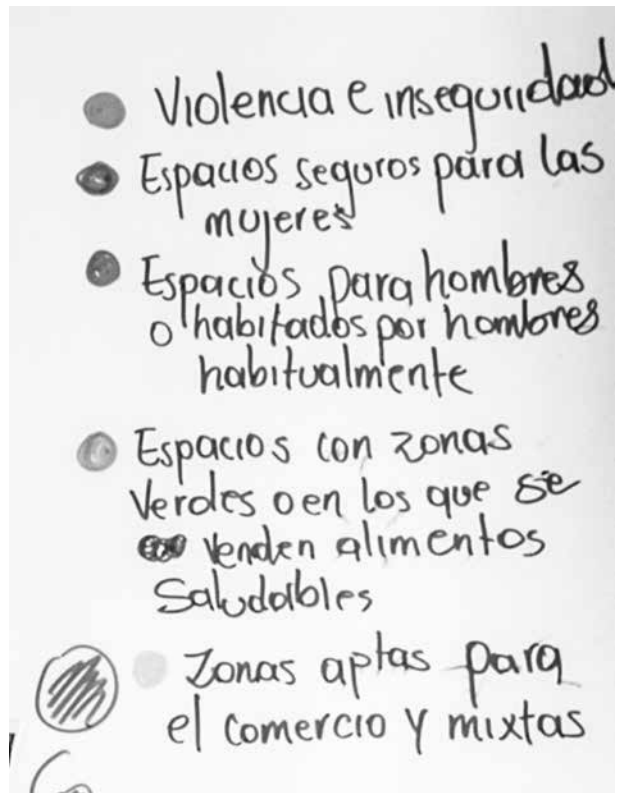 Violencia e inseguridad
Espacios seguros para las
mujeres
Espacios para hombres
o habitados por hombres
habitualmente
Espacios con zonas
Verdes o en los que se
venden alimentos
Saludables
Zonas aptas para
el comercio y mixtas